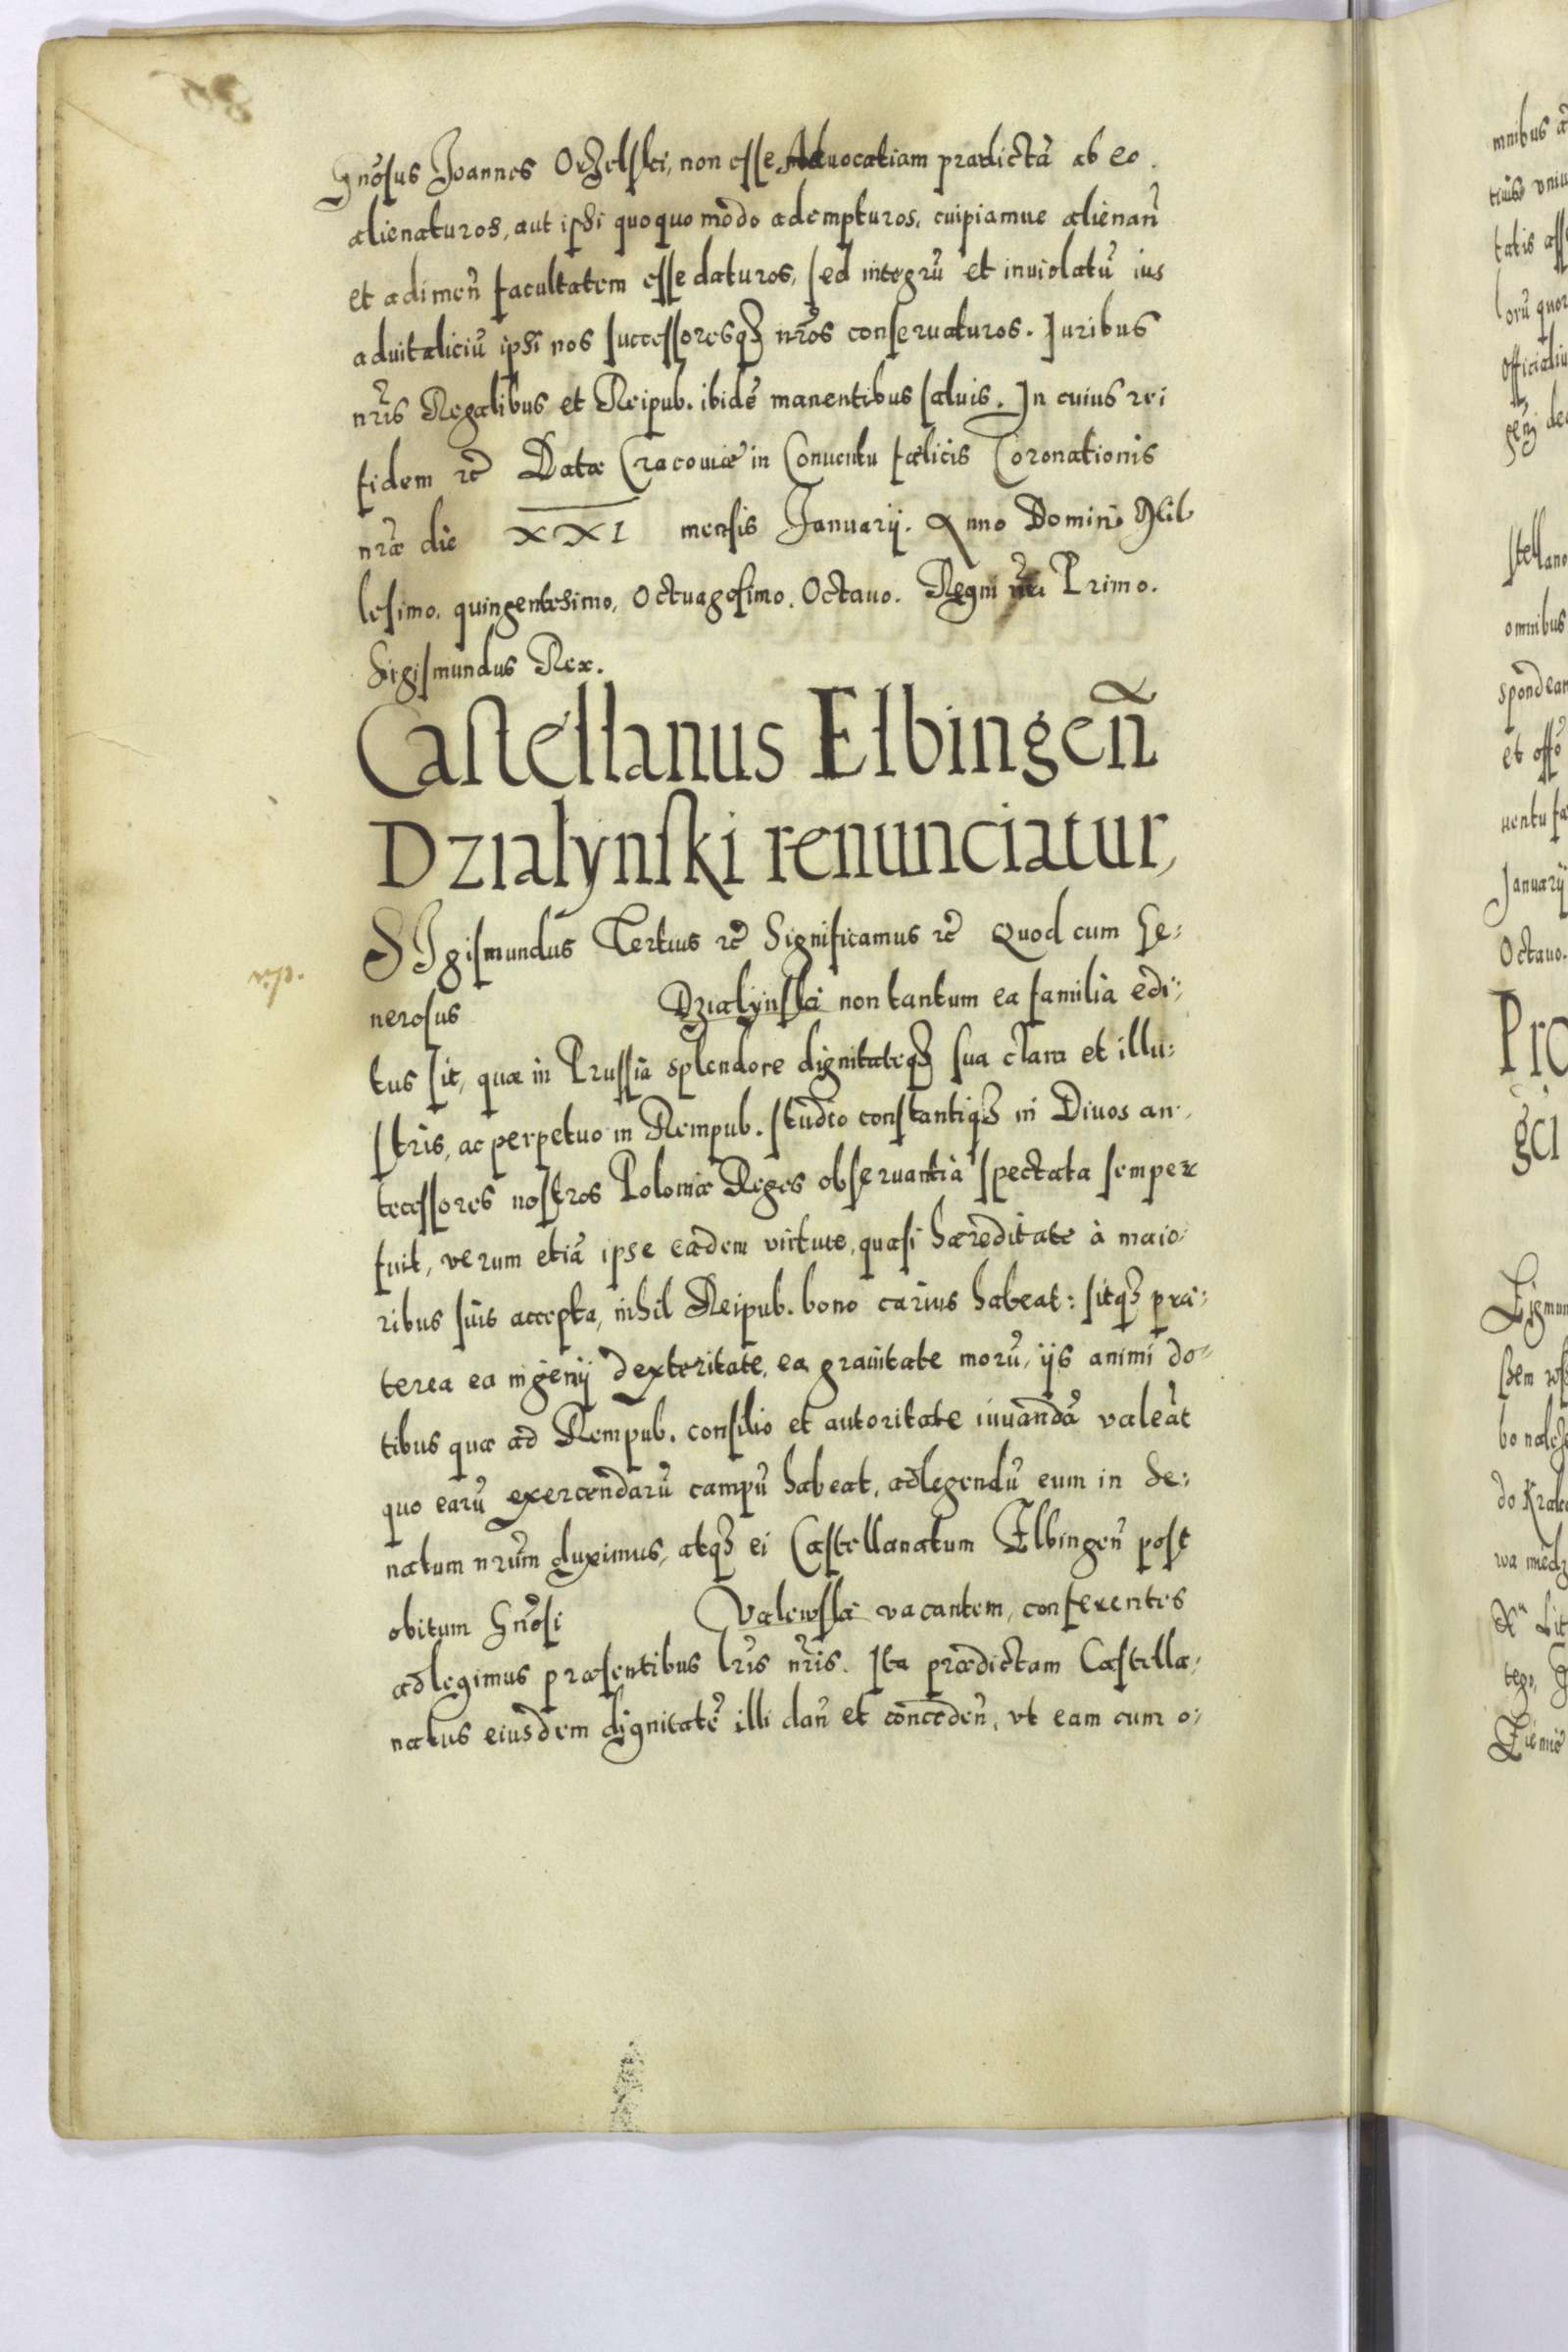 Gnõsus Joannes Orzelski, non esse Aduocatiam prædictã ab eo
alienaturos, aut ipsi quoquo modo adempturos, cuipiamue alienañ
et adimeñ facultatem esse daturos, sed integrũ et inuiolatũ ius
aduitaliciũ ipsi nos successoresq3 nr̃os conseruaturos. Juribus
nr̃is Regalibus et Reipub. ibidẽ manentibus saluis. In cuius rei
fidem rc̃ Datæ Cracouiæ in Conuentu fœlicis Coronationis
nr̃æ die XXI mensis Januarij. Anno Domini Mil
lesimo, quingentesimo, Octuagesimo. Octauo. Regni nr̃i Primo.
Sigismundus Rex.
Castellanus Elbingeñ
Dzialynski renunciatur,
SIgismundus Tertius rc̃ Significamus rc̃ Quod cum Ge:
nerosus Dzialynski non tantum ea familia edi:
tus sit, quæ in Prussia splendore dignitateq3 sua clara et illu:
stris, ac perpetuo in Rempub. studio constantiq3 in Diuos an:
tecessores nostros Poloniæ Reges obseruantia spectata semper
fuit, verum etiã ipse eadem virtute, quasi hæreditate à maio:
ribus suis accepta, nihil Reipub. bono carius habeat: sitq3 præ:
terea ea ingenij dexteritate, ea grauitate morũ, ijs animi do:
tibus quæ ad Rempub. consilio et autoritate iuuandã valeãt
quo earũ exercendarũ campũ habeat, adlegendũ eum in Se:
natum nr̃um duximus, atq3 ei Castellanatum Elbingeñ post
obitum Gnõsi Valewski vacantem, conferentes
adlegimus præsentibus lr̃is nr̃is. Ita prædictam Castella:
natus eiusdem dignitatẽ illi dañ et concedeñ, vt eam cum o: